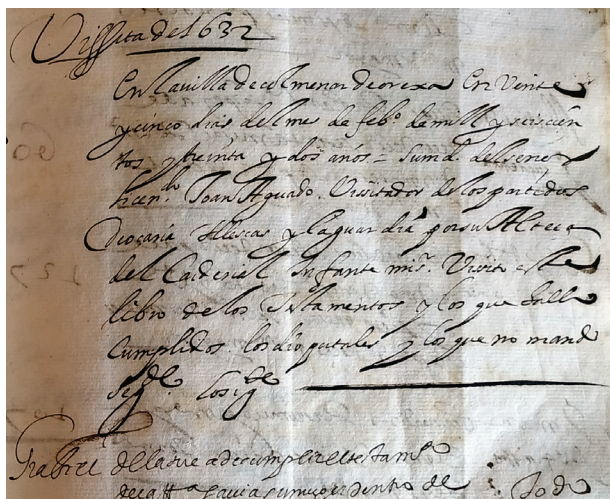 Vissita del 632
En la villa de colmenar de orexa En Veinte
y cinco dias del mes de feb.º de mill y seiscien
tos y treinta y dos años = Su md. del señor
licen.do Joan Aguado. Vissitador de los partidos
de ocaña Illescas y la guardia por su Alteça
del Cardenal Infante mi sr. Visito este
libro de los Testamentos y los que hallo
Cumplidos. los dio por tales y los que no mando
se g.de lo sig.te
Gabriel de la a de cumplir el testam.to
de de